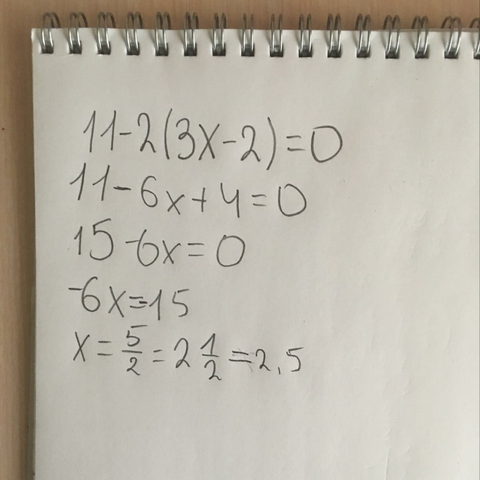 11-2(3x-2)=0
11-6x+4=0
15-6x=0
-6x=-15
x=5/2=2 1/2=2,5